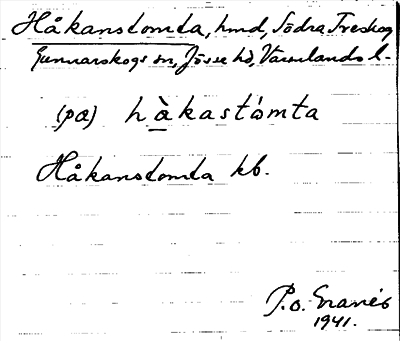 Håkanstomta, hmd, Södra Treskog
Gunnarskogs sn, Jösse hd, Värmlands l.
(pa) hàkastómta
Håkanstomta kb.
P.O. Granér
1941.